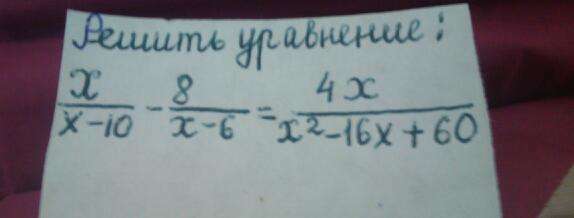 Решить уравнение:
x/(x-10) - 8/(x-6) = 4x/(x²-16x+60)